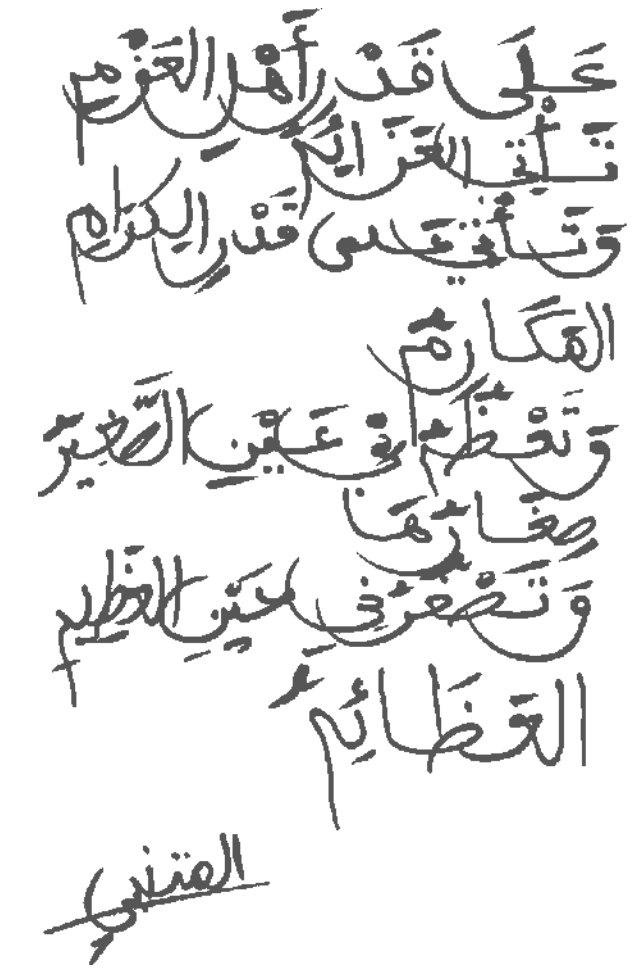 عَلَى قَدْرِ أَهْلِ الْعَزْمِ
تَأْتِي العَزَائِمُ
وَتَأْتِي عَلَى قَدْرِ الكِرَامِ
المَكَارِمُ
وَتَعْظُمُ فِي عَيْنِ الصَّغِيرِ
صِغَارُهَا
وَتَصْغُرُ فِي عَيْنِ العَظِيمِ
العَظَائِمُ
المتنبي